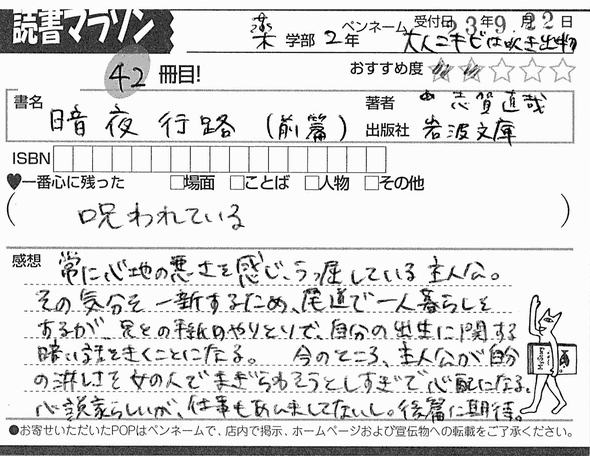 読書マラソン
薬 学部 2年
ペンネーム 大人ニキビは吹き出物
受付日 23年9月22日
42 冊目!
おすすめ度
書名 暗夜行路 (前篇)
著者 志賀直哉
出版社 岩波文庫
ISBN
♥一番心に残った □場面 □ことば □人物 □その他
( 呪われている )
感想 常に心地の悪さを感じ、うっ屈している主人公。
その気分を一新するため、尾道で一人暮らしを
するが、兄との手紙のやりとりで、自分の出生に関する
暗い話をきくことになる。 今のところ、主人公が自分
の淋しさを女の人でまぎらわそうとしすぎで心配になる。
小説家らしいが、仕事もあんましてないし。後篇に期待。
●お寄せいただいたPOPはペンネームで、店内で掲示、ホームページおよび宣伝物への転載をご了承ください。